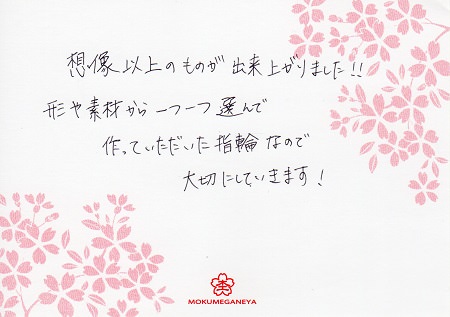 想像以上のものが出来上がりました!!
形や素材から一つ一つ選んで
作っていただいた指輪なので
大切にしていきます!
MOKUMEGANEYA